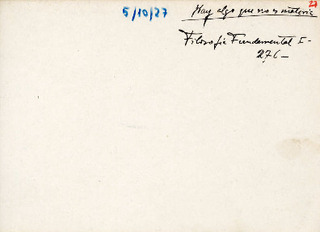 27
5/10/27
Hay algo que no es materia
Filosofia Fundamental I-
276-